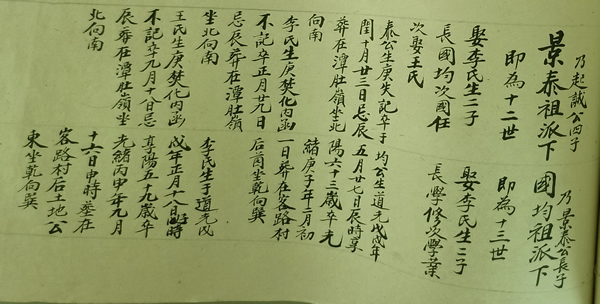 乃起誠公四子
景泰祖派下
即為十二世
娶李氏生二子
長國均次國任
次娶王氏
泰公生庚失記卒于
閏十月廿三日忌辰
葬在潭肚嶺坐北
向南
李氏生庚焚化內函
不記卒正月廿九日
忌辰葬在潭肚嶺
坐北向南
王氏生庚焚化內函
不記卒九月十八日忌
辰葬在潭肚嶺坐
北向南
乃景泰公長子
國均祖派下
即為十三世
娶李氏生二子
長學修次學業
均公生道光戊戌年
五月廿七日辰時享
陽六十三歲卒光
緒庚子年二月初
一日葬在客路村
后茵坐乾向巽
李氏生于道光戊
戌年正月十八日時
享陽五十九歲卒
光緒丙申年九月
十六日申時墓在
客路村后土地公
東坐乾向巽